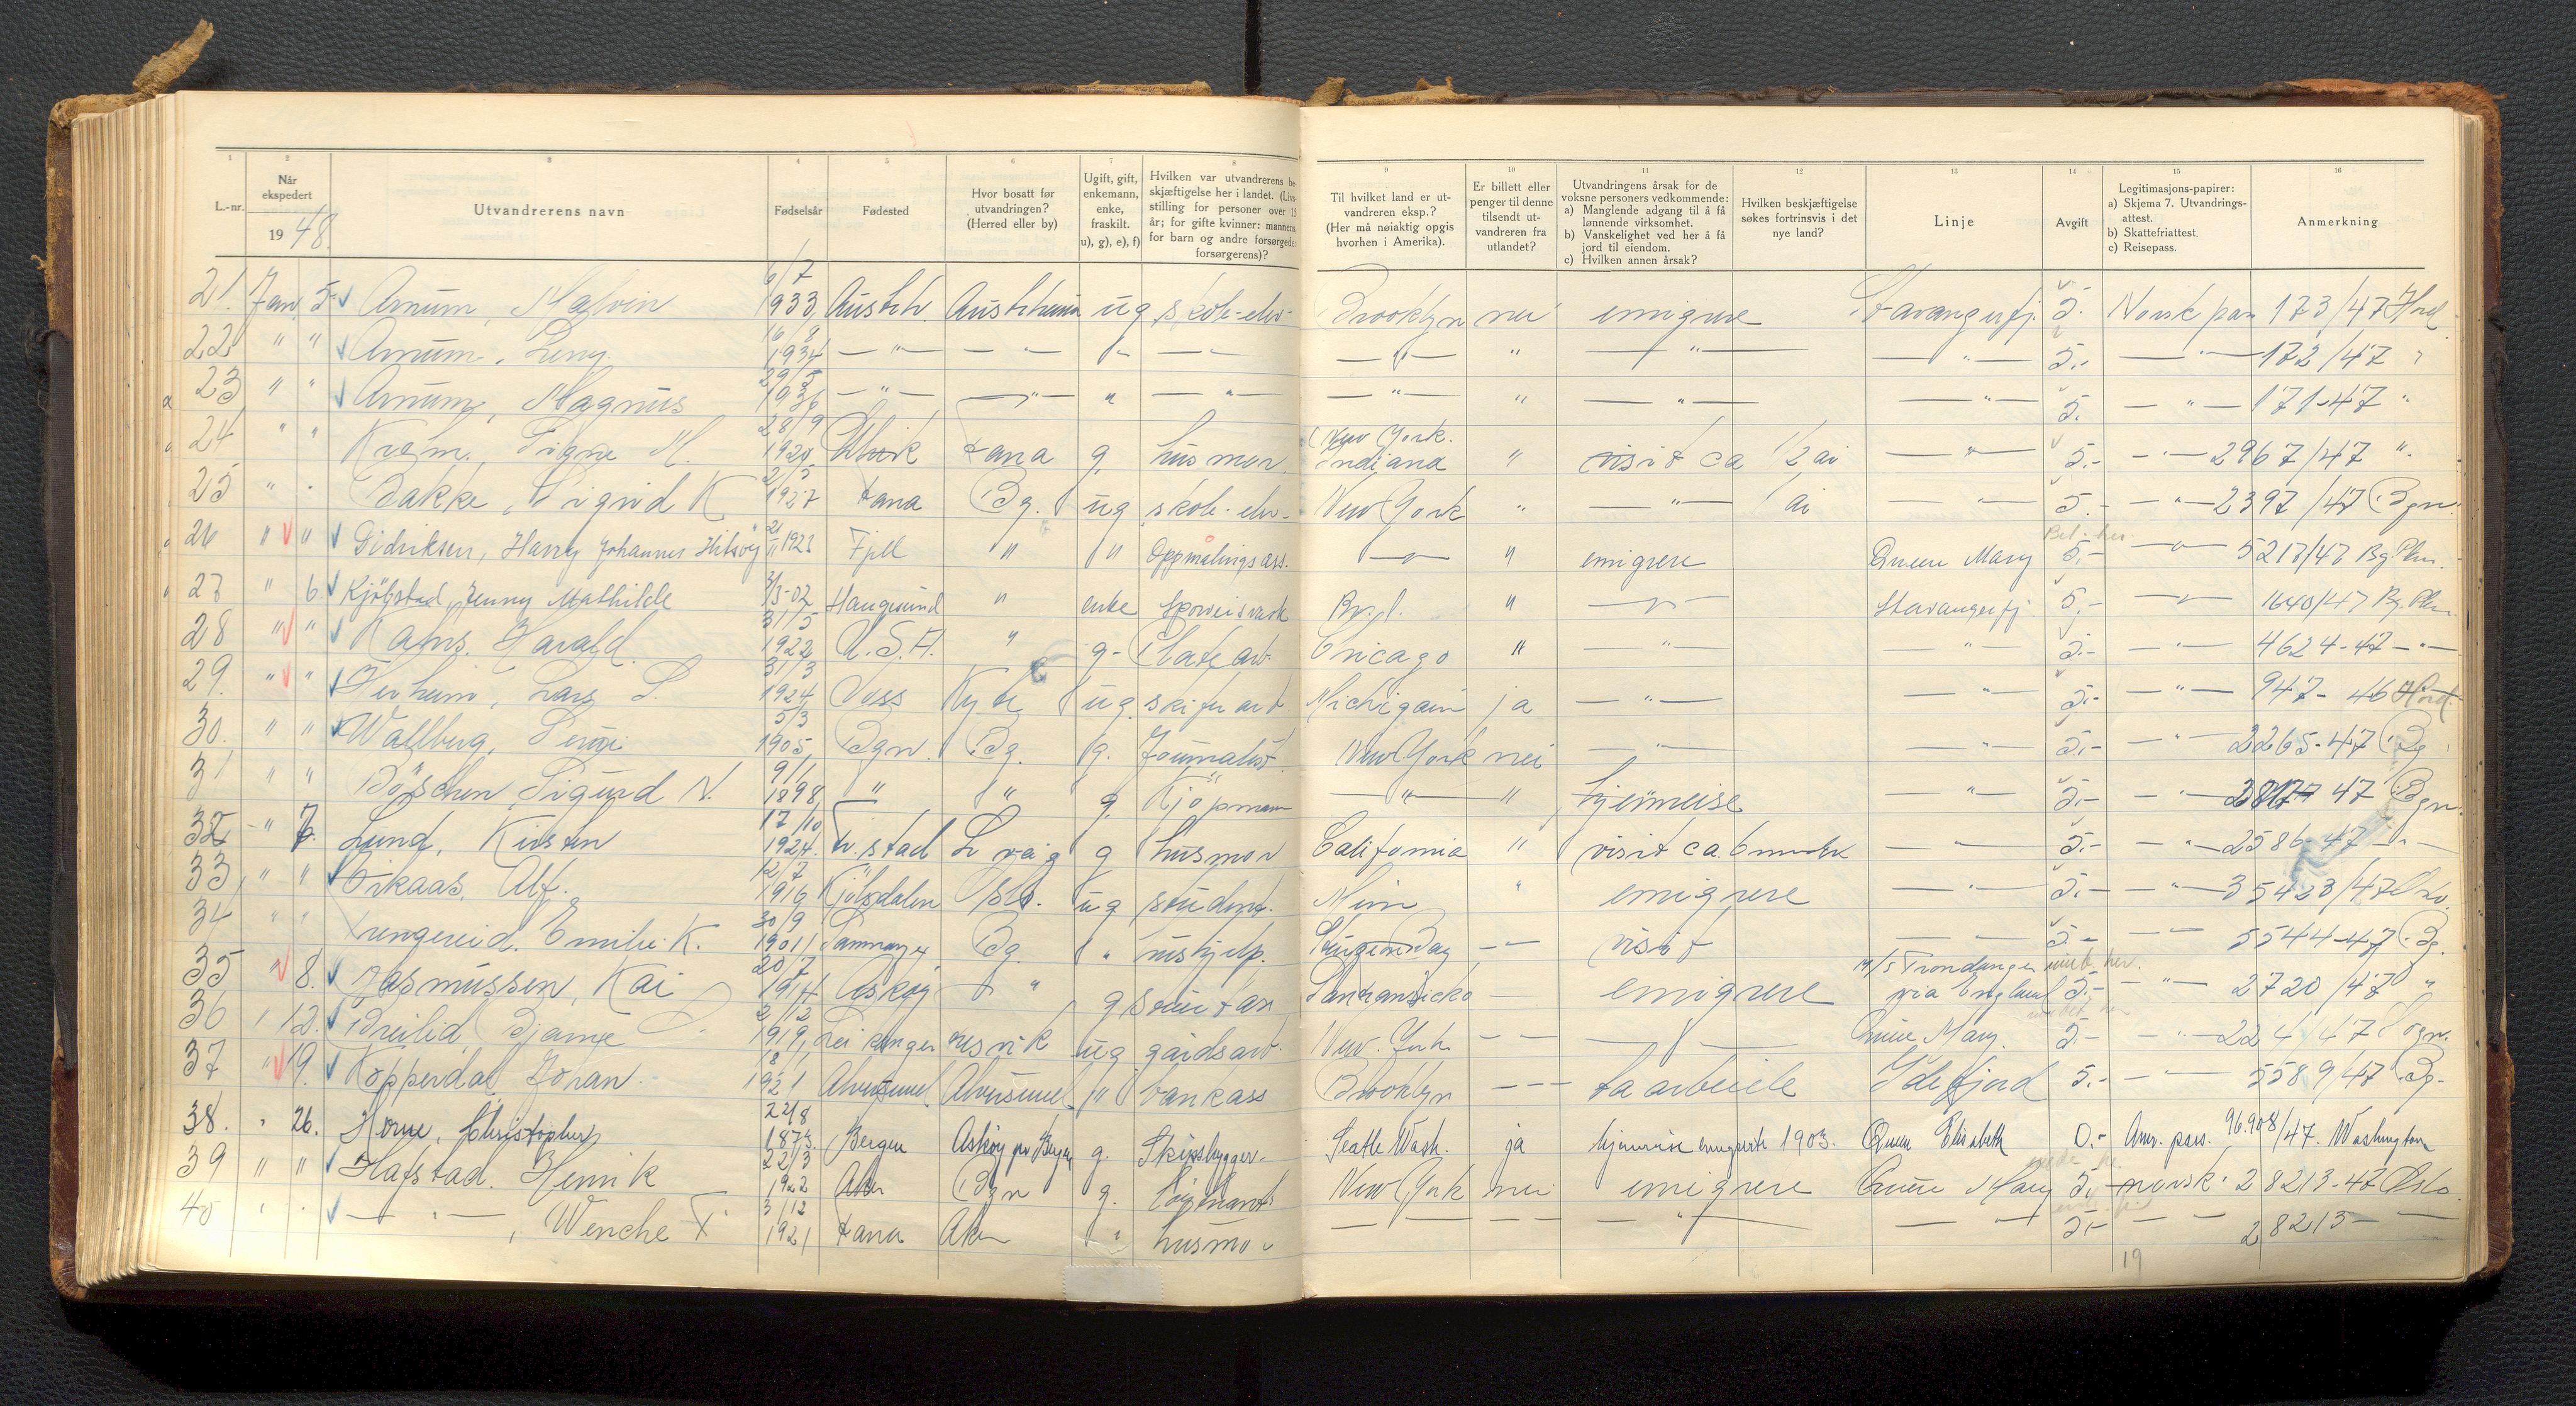 1 2 3 4 5 6 7 8 9 10 11 12 13 14 15 16
L.-nr.
Når ekspedert 1948.
Utvandrerens navn
Fødselsår
Fødested
Hvor bosatt før utvandringen? (Herred eller by)
Ugift, gift, enkemann, enke, fraskilt. u), g), e), f)
Hvilken var utvandrerens beskjæftigelse her i landet. (Livsstilling for personer over 15 år; for gifte kvinner: mannens, for barn og andre forsørgede: forsørgerens)?
Til hvilket land er utvandreren eksp.? (Her må nøiaktig opgis hvorhen i Amerika).
Er billett eller penger til denne tilsendt utvandreren fra utlandet?
Utvandringens årsak for de voksne personers vedkommende: a) Manglende adgang til å få lønnende virksomhet. b) Vanskelighet ved her å få jord til eiendom. c) Hvilken annen årsak?
Hvilken beskjæftigelse søkes fortrinsvis i det nye land?
Linje
Avgift
Legitimasjons-papirer: a) Skjema 7. Utvandrings-attest. b) Skattefriattest. c) Reisepass.
Anmerkning
21. Jan 5 Arnum, Malvin 6/7 1933 Austrh. Austrheim ug skole-elev- Brooklyn nei emigrere Stavangerfj. 5.- Norsk pas 173/47 Hord
22 " " Arnum, 1934 — " — — " — — " — — " — " — " — — " — 5.- — " — 172/47 "
23 " " Arnum, Magnus 29/5 1936 — " — — " — " — " — — " — " — " — — " — 5. — " — 171-47 "
24 " " Signe M. 28/9 1920 Ulvik Fana g. husmor New York. Indiana " visit ca 1/2 år — " — 5.- — " — 2967/47 "
25 " " Bakke, Sigrid K 2/5 1927 Fana Bg. ug skole-elev- New York " — " — 1 år — " — 5.- — " — 2397/47 Bgn.
26 " " Didriksen, Harry Johannes 21/11 1923 Fjell " " Oppmålingsass. — " — " emigrere Queen Mary 5,- — " — 5217/47 Bg.
27 " 6 Jenny Mathilde 3/3-02 Haugesund " enke " — " — Stavangerfj 5,- — " — 1640/47 Bg.
28 " " Harald 31/5 1922 U.S.A. " g- Chicago " — " — — " — 5.- — " — 4624-47 — " —
29. " " Lars 31/3 1924 Voss ug. skiferarb. Michigan ja — " — — " — 5.- — " — 947-46 Hord.
30. " " Wallberg, 5/3 1905 Bgn. Bg. g. Journalist New York nei — " — — " — 5.- — " — 2265-47 Bg
31 " " Sigurd N. 9/1 1898 " " g. Kjøpmann — " — " hjemreise — " — 5.- — " — 47 Bgn
32 " 7. Lund, Kirsten 17/10 1924. g husmor California " visit ca. 6 — " — 5.- — " — 2586-47 — " —
33 " " Alf. 12/7 1916 Kjølsdalen Oslo. ug student. Minn " emigrere — " — 5.- — " — 35423/47 Oslo.
34 " " Emilie K. 30/9 1901 Samnanger Bg. " hushjelp. — " — visit — — 5.- — — 5544-47 Bg.
35 " 8. Rasmussen, Kai 20/7 Askøy " g — emigrere M/S via England 5.- — " — 2720/47 "
36 " 12. Breilid, Bjarne 2/12 1919, Leikanger ug gårdsarb. New. York — — — " — Queen Mary. 5.- — " — 224 47 Sogn.
37 " 19. Kopperdal Johan. 1921 Alversund Alversund " bankass Brooklyn — — få arbeide Idefjord 5.- — " — 5589/47 Bg.
38. " 26. Horne, 22/8 1873. Bergen Askøy pr Bergen g. Skipsbygger. Seatle Wash. ja hjemreise emigrerte 1903. Queen Elisabeth 0.- Amr. pass. 96.908/47. Washington
39 " " Hafstad. Henrik 22/3 1922 Aker Bgn g. New York nei emigrere Queen Mary 5.- norsk 28213-47 Oslo.
40 " " — " —, Wenche F 3/12 1921 Fana Aker " husmor — — — — — " — — — 5.- — — 28213 — —
19